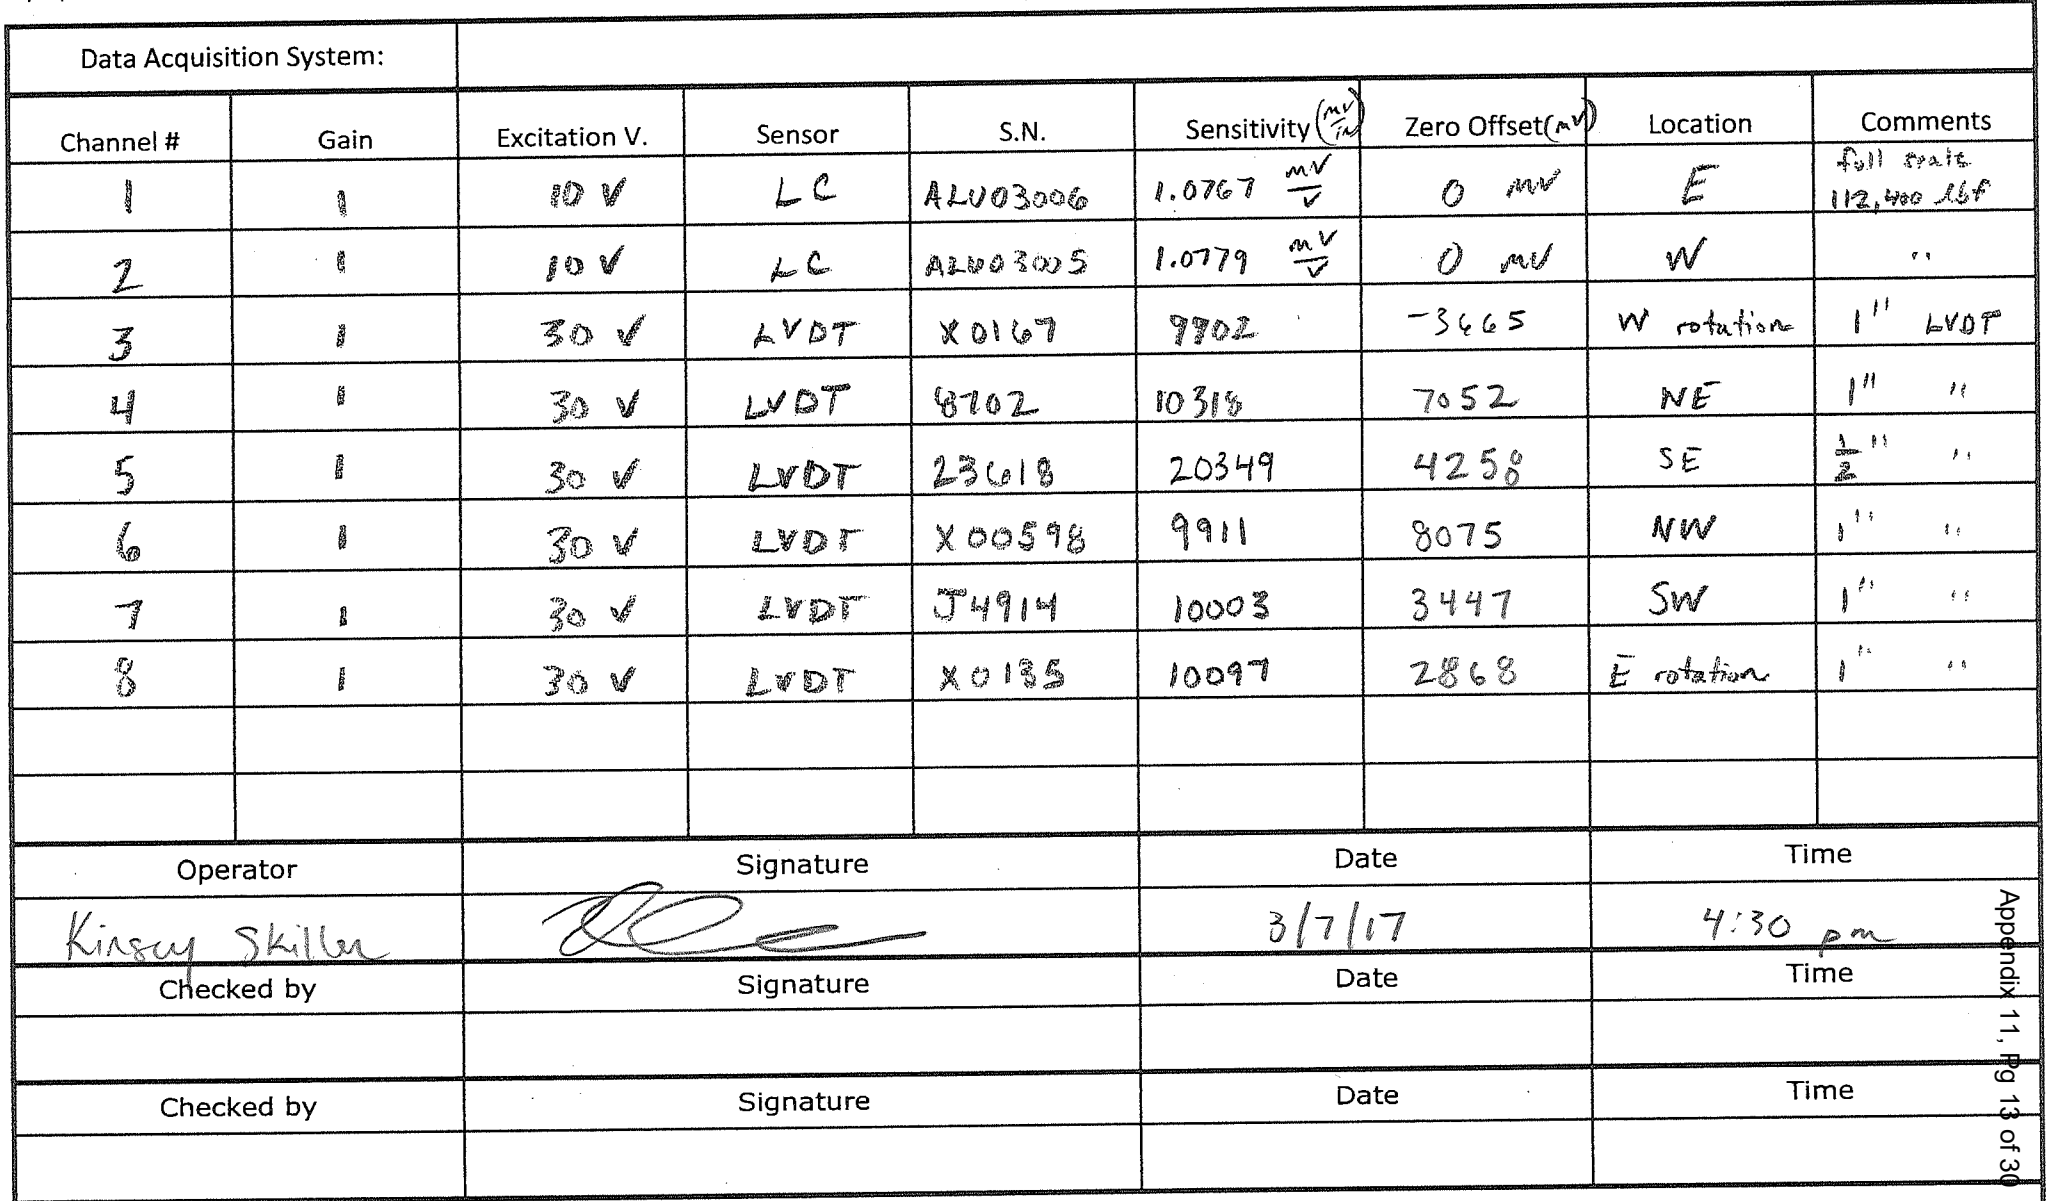 Data Acquisition System:
Channel # Gain Excitation V. Sensor S.N. Sensitivity (mV/in) Zero Offset (mV) Location Comments
1 1 10 V LC ALU03006 1.0767 mV/V 0 mV E full scale 112,400 lbf
2 1 10 V LC ALU03005 1.0779 mV/V 0 mV W "
3 1 30 V LVDT X0167 9902 -3665 W rotation 1" LVDT
4 1 30 V LVDT 8702 10318 7052 NE 1" "
5 1 30 V LVDT 23618 20349 4258 SE 1/2" "
6 1 30 V LVDT X00598 9911 8075 NW 1" "
7 1 30 V LVDT J4914 10003 3447 SW 1" "
8 1 30 V LVDT X0135 10097 2868 E rotation 1" "
Operator Signature Date Time
Kinsey Skillen 3/7/17 4:30 pm
Checked by Signature Date Time
Checked by Signature Date Time
Appendix 11, Pg 13 of 30